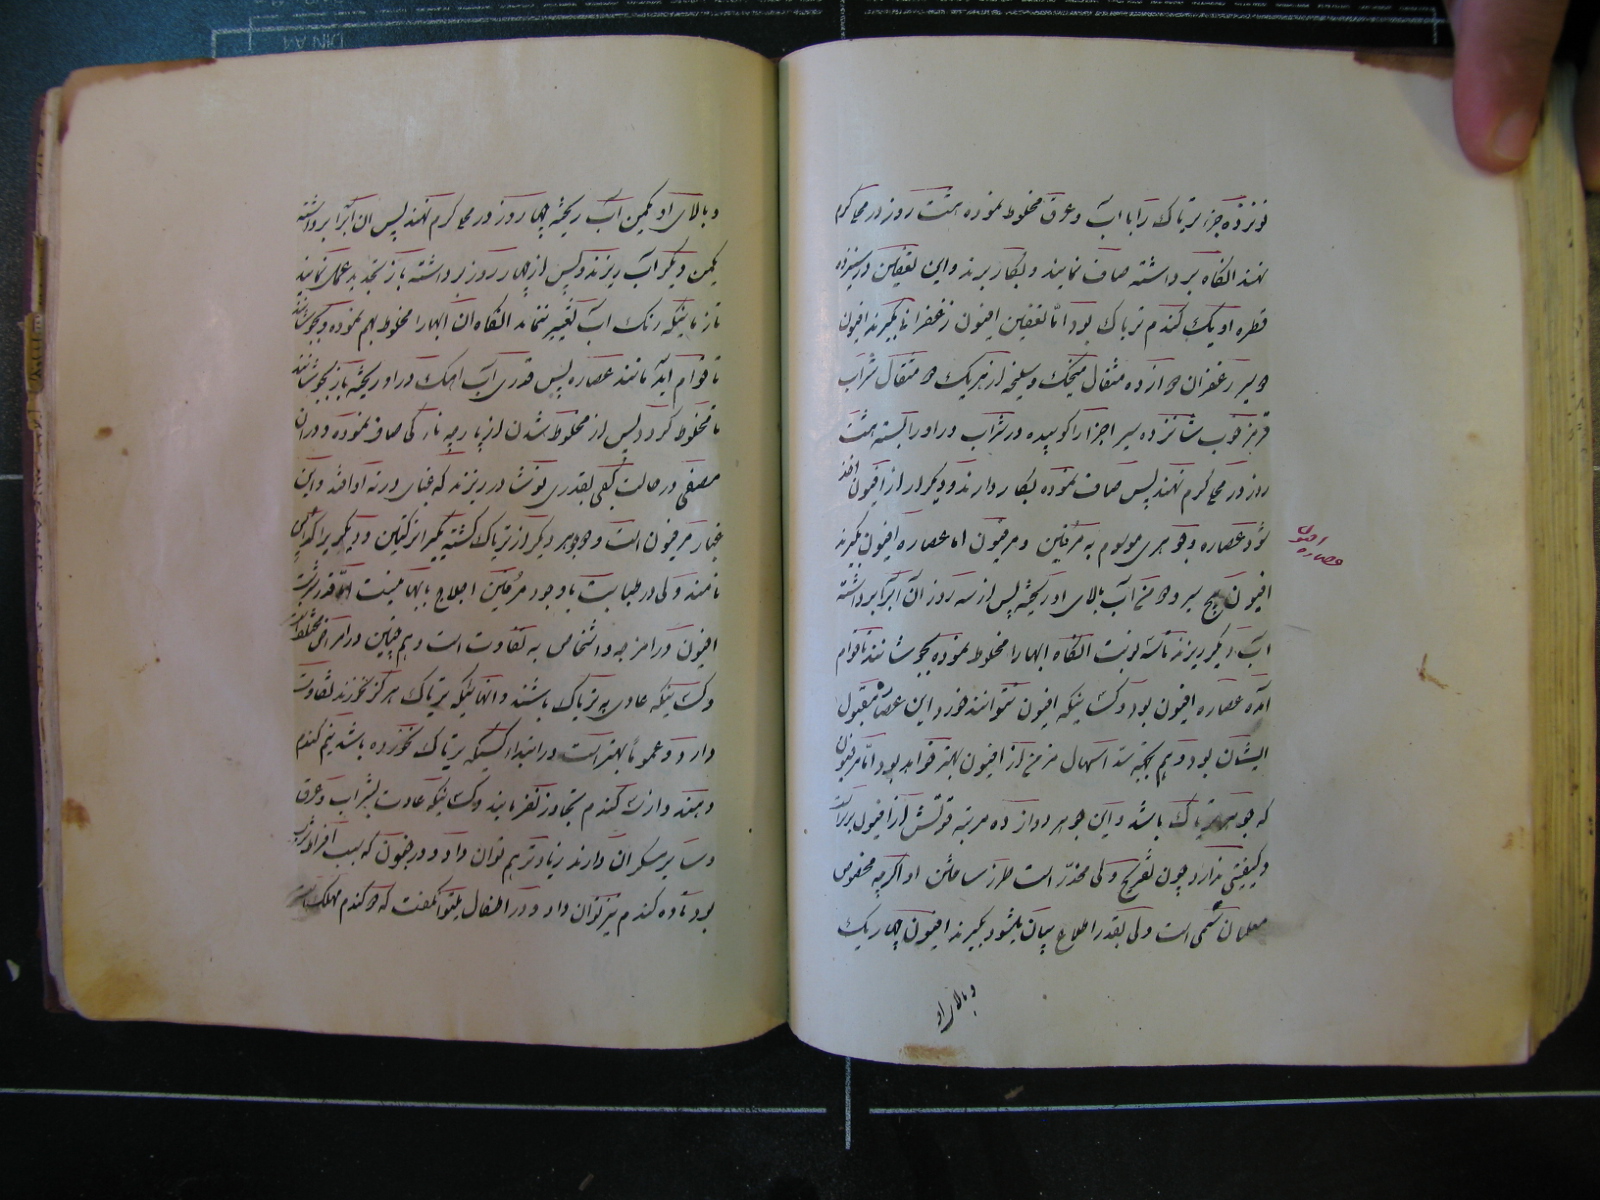 نوزده جزء تریاک را با آب و عرق مخلوط نموده هشت روز در محل گرم
نهند انگاه برداشته صاف نمایند و بکار برند و این لعفین در سیزده
قطره او یک گندم تریاک بود اما لعفین افیون زعفرانا بگیرند افیون
سیر زعفران از ده مثقال میخک و سلیخه از هر یک مثقال شراب
قرمز خوب شانزده سیر اجزا را کوبیده در شراب در او را بسته هشت
روز در محل گرم نهند پس صاف نموده بکار دارند و دیگر از افیون اخذ
شود عصاره و جوهری موسوم به مرفین و مرفیون اما عصاره افیون بگیرند
افیون پنج سیر و من آب بالای او ریخته پس از سه روز آن آب را برداشته
آب دیگر ریزند تا سه نوبت انگاه ابها را مخلوط نموده بجوشانند تا قوام
آمده عصاره افیون بود و کسانیکه افیون نتوانند خورد این عصاره مقبول
ایشان بود و هم بجهة اسهال مزمن از افیون بهتر خواهد بود اما مرفیون
که جوهر تریاک باشد و این جوهر دوازده مرتبه قوتش از افیون برتر است
و کیفیتی ندارد چون تفریح ولی مخدر است طرز ساختن او اگرچه مخصوص
معلمان شیمی است ولی بقدر اطلاع بیان میشود بگیرند افیون چهار یک
و بالای او
عصاره افیون
و بالای او یکمن آب ریخته چهار روز در محل گرم نهند پس ان آب را برداشته
یکمن دیگر آب ریزند و پس از چهار روز برداشته باز تجدید عمل نمایند
تا زمانیکه رنک آب تغییر ننماید انگاه ان ابها را مخلوط بهم نموده و بجوشانند
تا قوام آید مانند عصاره پس قدری آب اهک در او ریخته باز بجوشانند
تا مخلوط گردد پس از مخلوط شدن از پارچه نازکی صاف نموده و در ان
مصفی در حالت گفی بقدری نوشادر ریزند که غبای در ته او افتد و این
غبار مرفیون است و جوهر دیگر از تریاک گشته بگیر انرکتین و دیگر پراکه
نامند ولی در طبابت با وجود مرفین احتیاج بابها نیست اما قدر شربت
افیون در امزجه و اشخاص به تفاوت است و هم چنین در امراض مختلف است
و کسانیکه عادی به تریاک باشند و انهائیکه تریاک هرگز نخورند تفاوت
دارد و عموما بهتر است در ابتدا کسیکه تریاک نخورده باشد نیم گندم
دهند و از سه گندم تجاوز نفرمایند و کسانیکه عادت بشراب و عرق
و سایر مسکران دارند زیادتر هم توان داد و در جنون که بسبب افراط شرب
بود تا ده گندم نیز توان داد و در اطفال میتوان گفت که گندم مهلک است